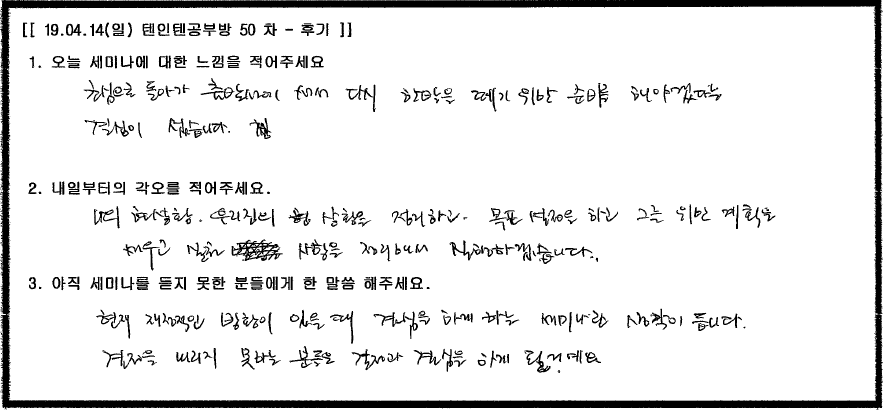 [[ 19.04.14(일) 텐인텐공부방 50 차 - 후기 ]]
1. 오늘 세미나에 대한 느낌을 적어주세요
초심으로 돌아가 출발선에 서서 다시 한발을 떼기 위한 준비를 해야겠다는
결심이 섰습니다.
2. 내일부터의 각오를 적어주세요.
나의 현상황. 우리집의 상황을 정리하고. 목표 설정을 하고 그를 위한 계획을
세우고 실천 사항을 정리해서 실천하겠습니다.
3. 아직 세미나를 듣지 못한 분들에게 한 말씀 해주세요.
현재 재정적인 방황이 있을 때 결심을 하게 하는 세미나란 생각이 듭니다.
결정을 내리지 못하는 분들도 결정과 결심을 하게 될거예요